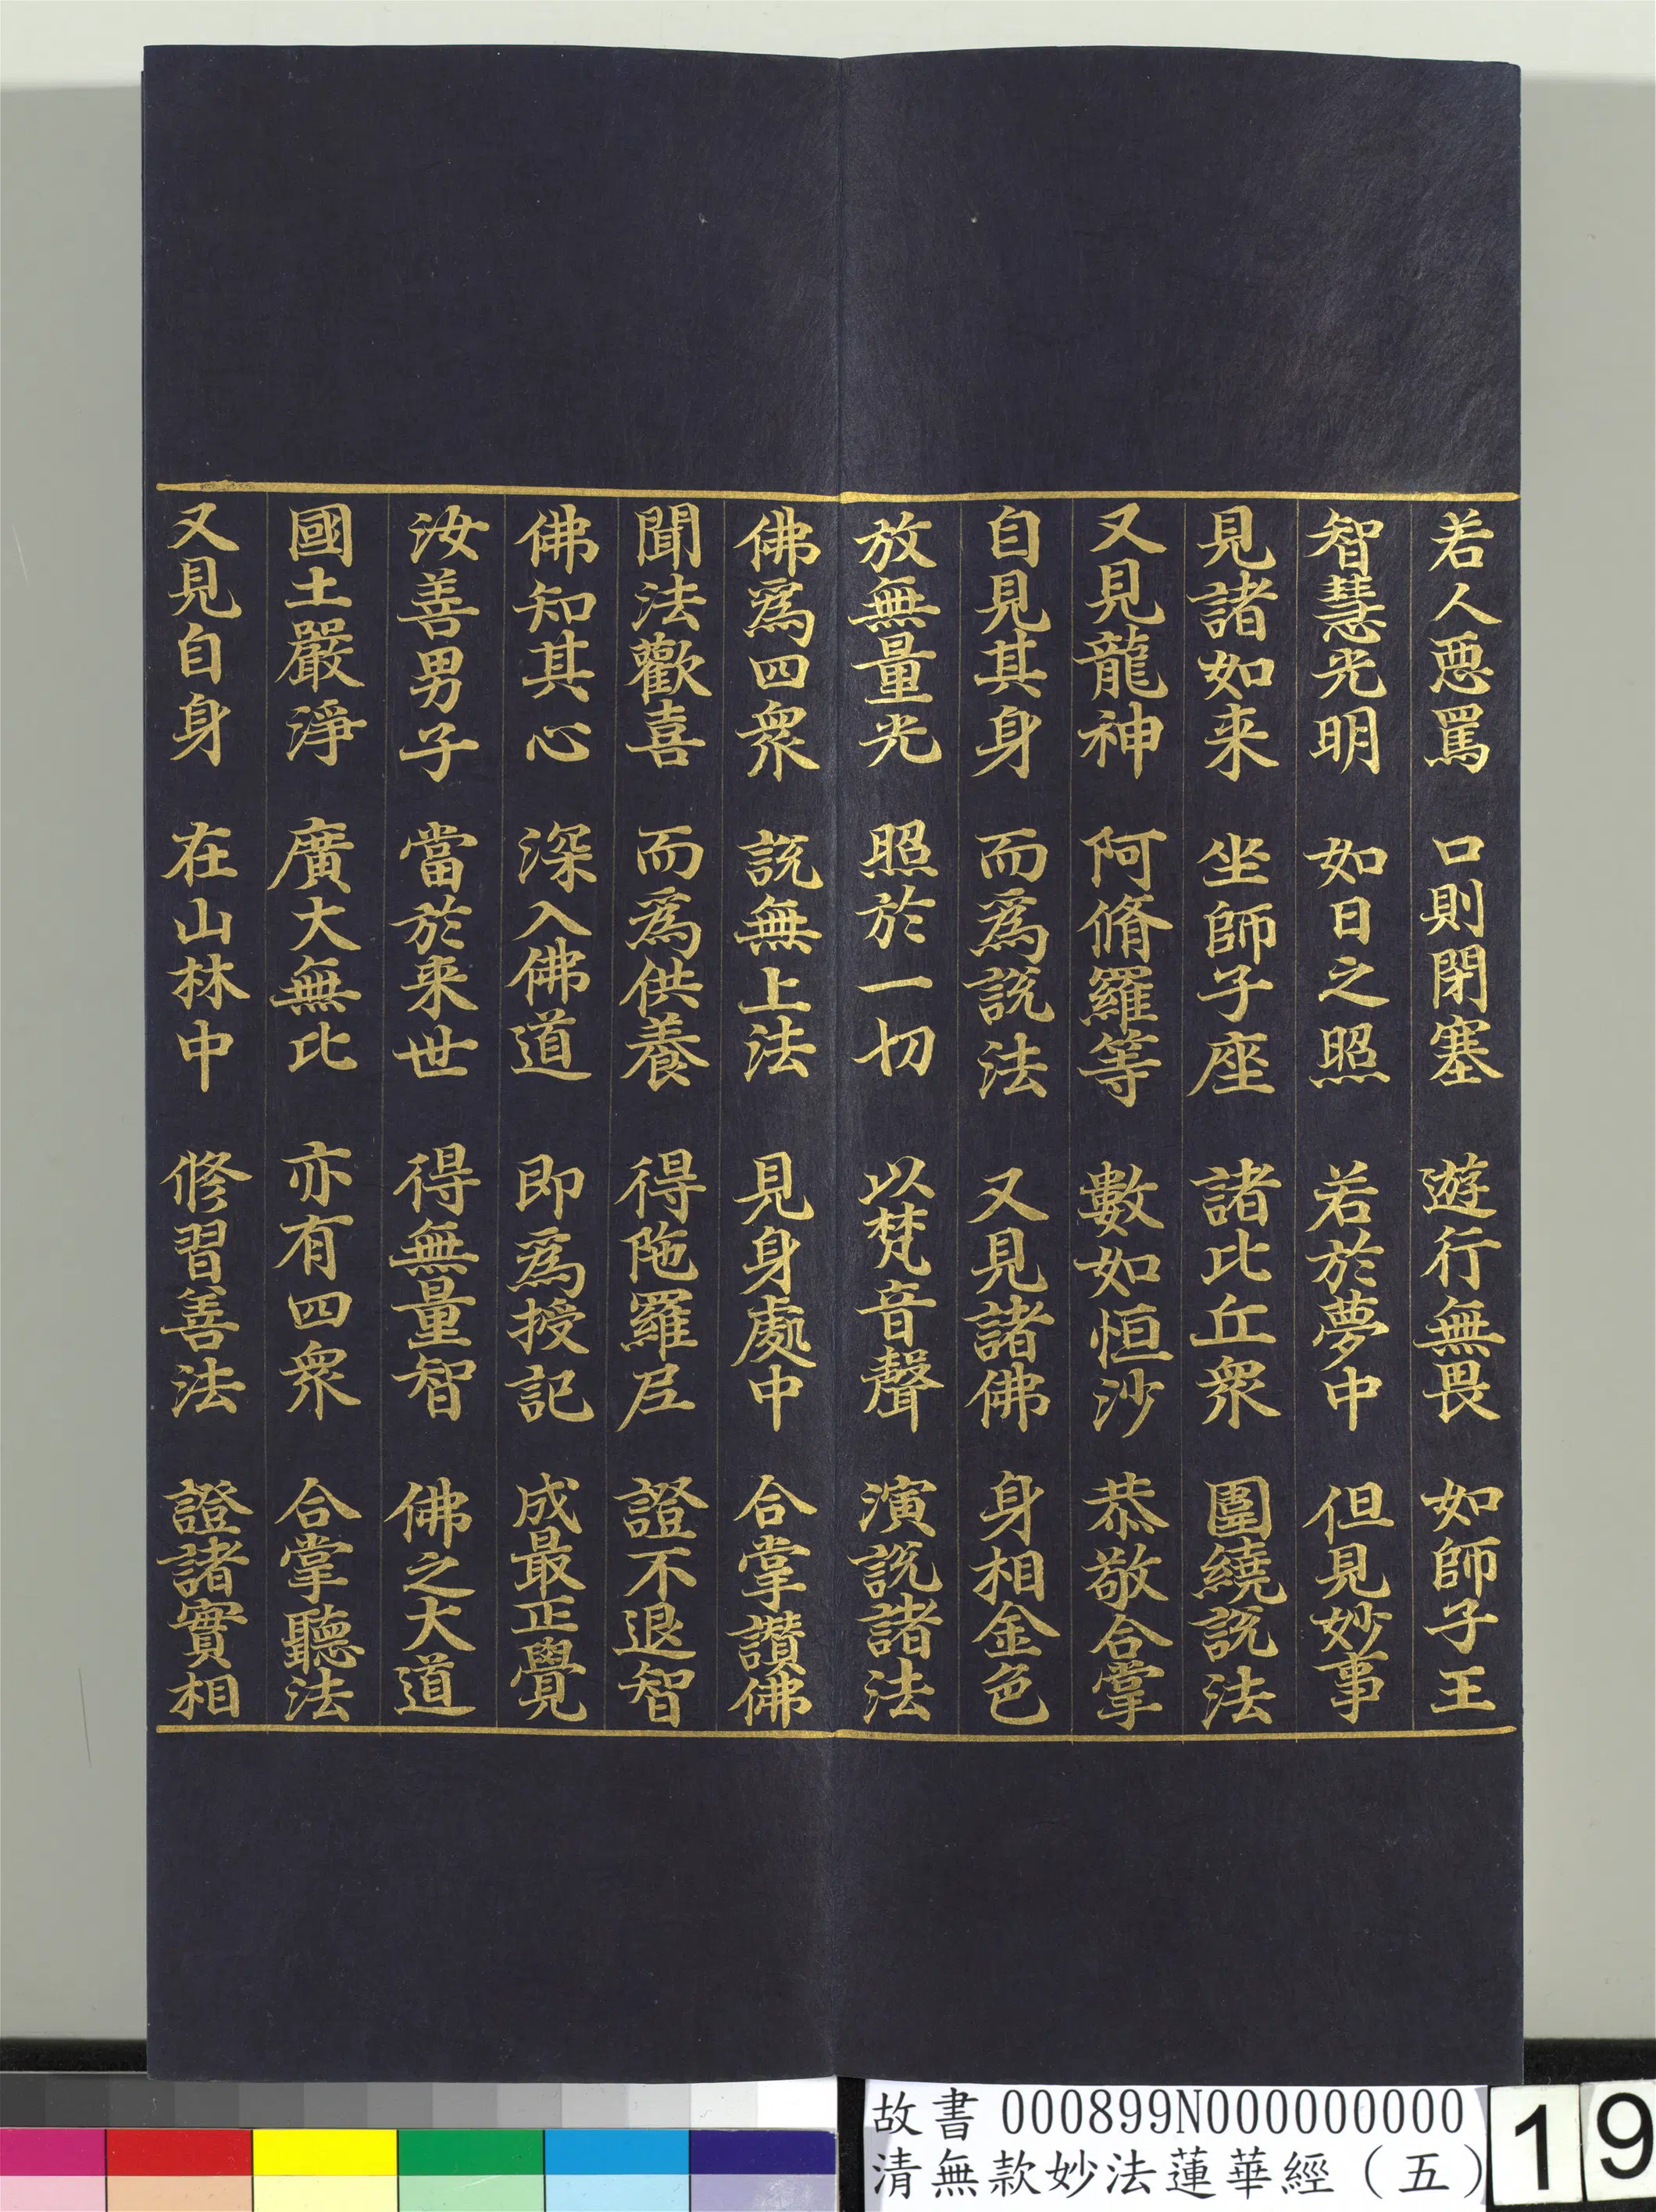 若人惡罵　口則閉塞　遊行無畏　如師子王
智慧光明　如日之照　若於夢中　但見妙事
見諸如来　坐師子座　諸比丘衆　圍繞説法
又見龍神　阿脩羅等　數如恒沙　恭敬合掌
自見其身　而爲説法　又見諸佛　身相金色
放無量光　照於一切　以梵音聲　演説諸法
佛爲四衆　説無上法　見身處中　合掌讚佛
聞法歡喜　而爲供養　得陁羅尼　證不退智
佛知其心　深入佛道　即爲授記　成最正覺
汝善男子　當於来世　得無量智　佛之大道
國土嚴淨　廣大無比　亦有四衆　合掌聽法
又見自身　在山林中　修習善法　證諸實相
故書 000899N000000000
清無款妙法蓮華經（五）
19